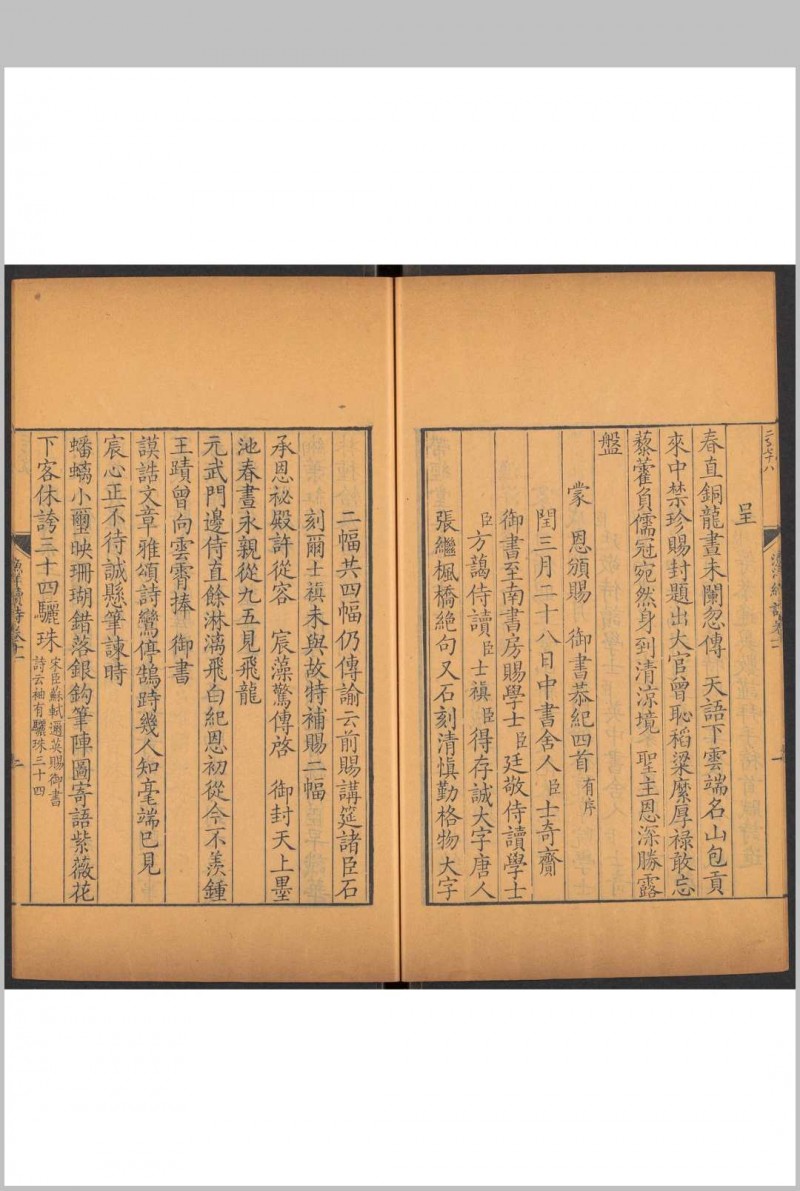 呈
春直銅龍晝未闌忽傳　天語下雲端名山包貢
來中禁珍賜封題出大官曾恥稻粱縻厚祿敢忘
藜藿負儒冠宛然身到清涼境　聖主恩深勝露
盤
蒙　恩頒賜　御書恭紀四首有序
閏三月二十八日中書舍人臣士奇齎
御書至南書房賜學士臣廷敬侍讀學士
臣方藹侍讀臣士禛臣得存誠大字唐人
張繼楓橋絕句又石刻清愼勤格物大字
二幅共四幅仍傳諭云前賜講筵諸臣石
刻爾士禛未與故特補賜二幅
承恩祕殿許從容　宸藻驚傳啓　御封天上墨
池春晝永親從九五見飛龍
元武門邊侍直餘淋漓飛白紀恩初從今不羨鍾
王蹟曾向雲霄捧　御書
謨誥文章雅頌詩鸞停鵠跱幾人知毫端已見
宸心正不待誠懸筆諫時
蟠螭小璽映珊瑚錯落銀鉤筆陣圖寄語紫薇花
下客休誇三十四驪珠宋臣蘇軾邇英賜御書
詩云袖有驪珠三十四